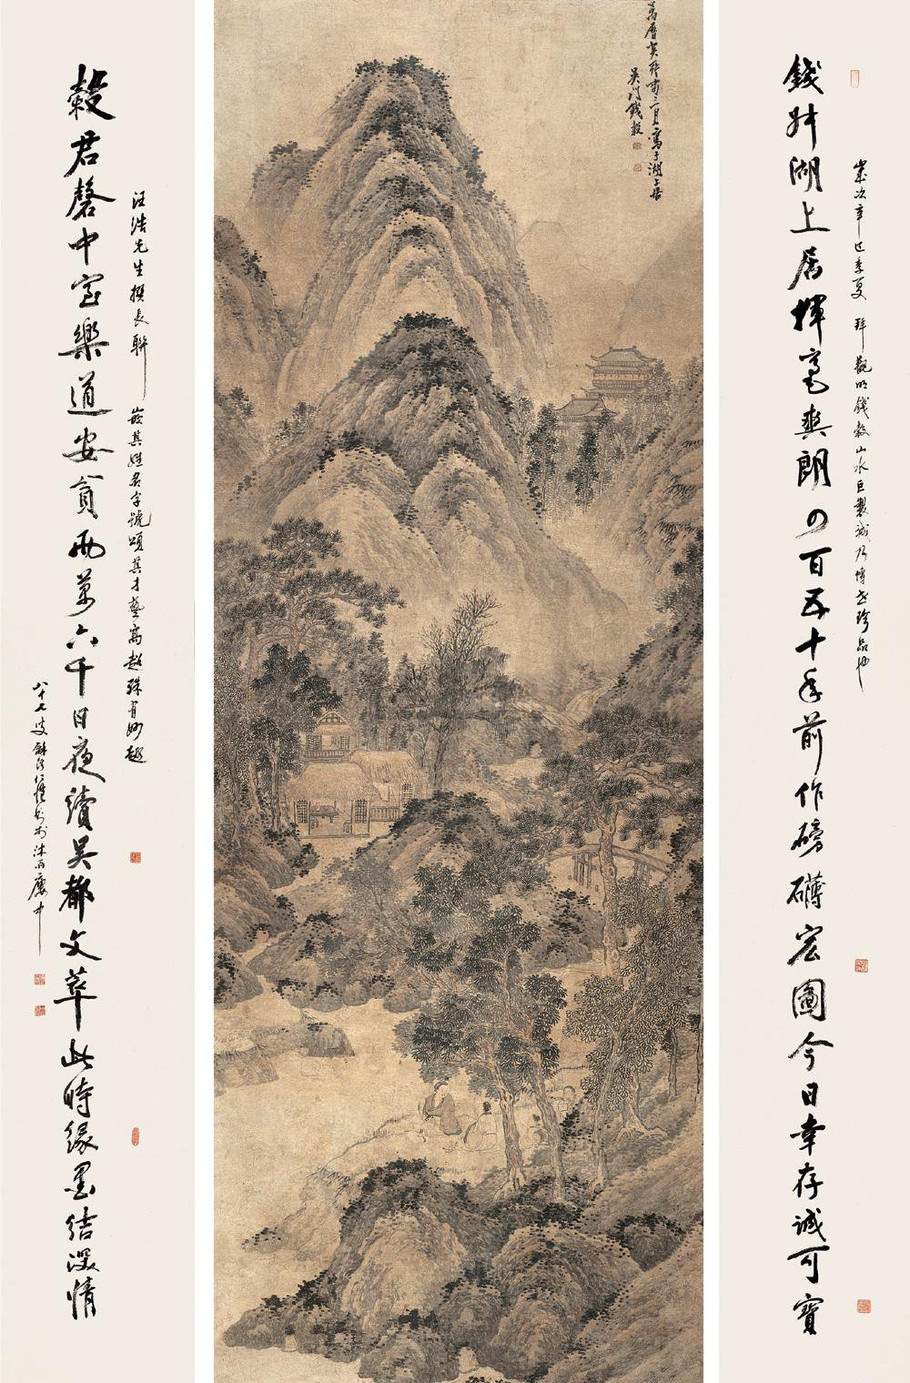 歲次辛巳季夏 拜觀明錢穀山水巨製誠乃傳世珍品也
錢舛湖上居揮毫爽朗四百五十年前作磅礴宏圖今日幸存誠可寶
萬曆癸酉三月寫于湖上居
吴門錢穀
汪浩先生撰長聯 嵌其姓名字號頌其才藝高超殊有妙趣
穀君磬中室樂道安貧兩萬六千日夜讀吴都文萃此時緣墨結深情
八十七叟